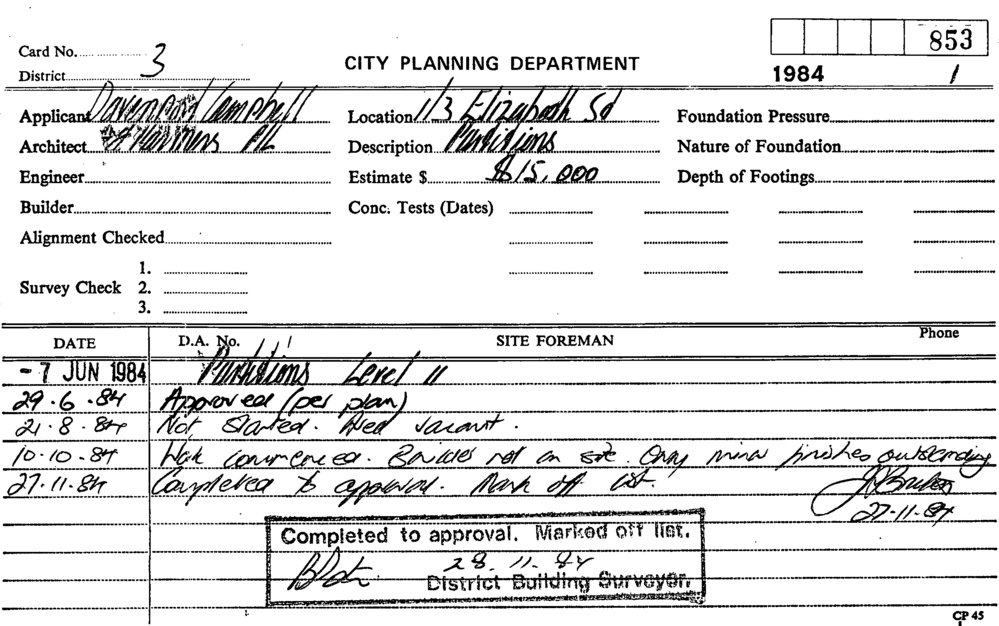 853
Card No. 3
CITY PLANNING DEPARTMENT
District
1984 1
Applicant Davenport Campbell
Location 1/3 Elizabeth St
Foundation Pressure
Architect & Partners P/L
Description Partitions
Nature of Foundation
Engineer
Estimate $ $15,000
Depth of Footings
Builder
Conc. Tests (Dates)
Alignment Checked
1.
Survey Check 2.
3.
DATE D.A. No. SITE FOREMAN Phone
- 7 JUN 1984 Partitions Level 11
29.6.84 Approved (per plan)
21.8.84 Not Started. Area vacant.
10.10.84 Work commenced. Builder not on site. Only minor finishes outstanding
27.11.84 Completed to approval. Mark off list.
27-11-84
Completed to approval. Marked off list.
28.11.84
District Building Surveyor.
CP 45